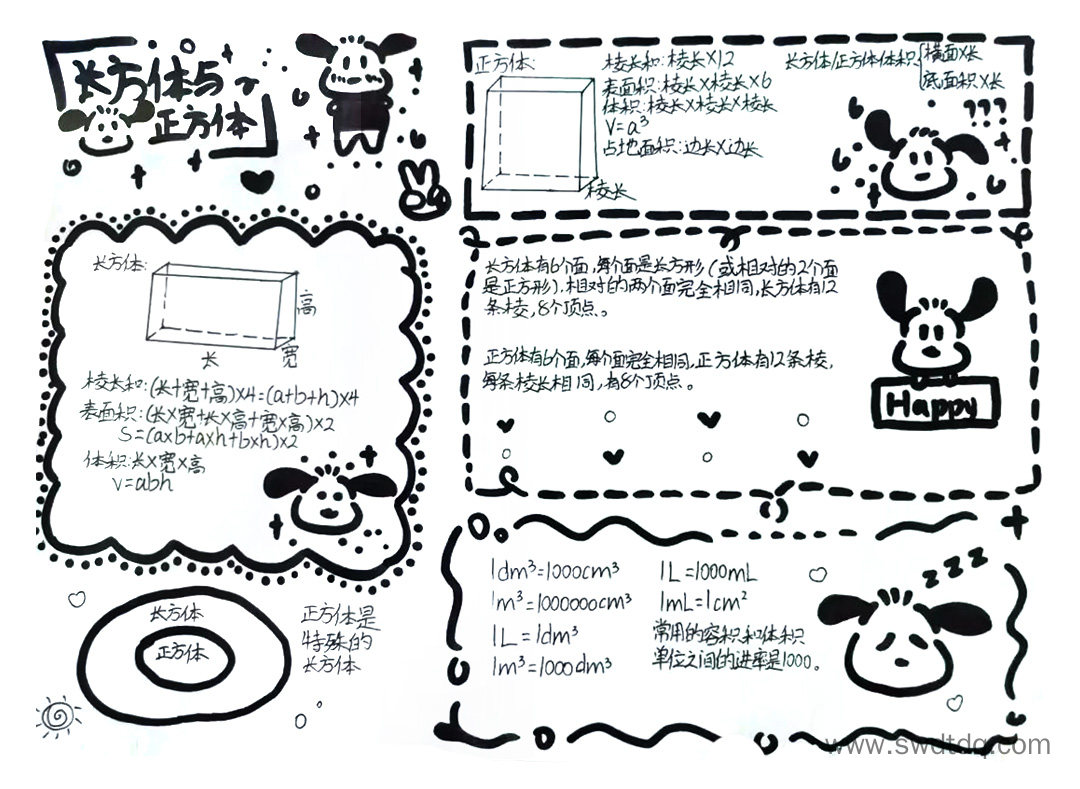 长方体与
正方体
长方体:
高
长
宽
棱长和:(长+宽+高)×4=(a+b+h)×4
表面积:(长×宽+长×高+宽×高)×2
S=(a×b+a×h+b×h)×2
体积:长×宽×高
V=abh
长方体
正方体
正方体是
特殊的
长方体
正方体:
棱长
棱长和:棱长×12
表面积:棱长×棱长×6
体积:棱长×棱长×棱长
V=a³
占地面积:边长×边长
长方体/正方体体积{横面×长
底面积×长
???
长方体有6个面,每个面是长方形(或相对的2个面
是正方形),相对的两个面完全相同,长方体有12
条棱,8个顶点。
正方体有6个面,每个面完全相同,正方体有12条棱,
每条棱长相同,有8个顶点。
Happy
1dm³=1000cm³
1m³=1000000cm³
1L=1dm³
1m³=1000dm³
1L=1000mL
1mL=1cm²
常用的容积和体积
单位之间的进率是1000。
zzz
www.swdtdq.com